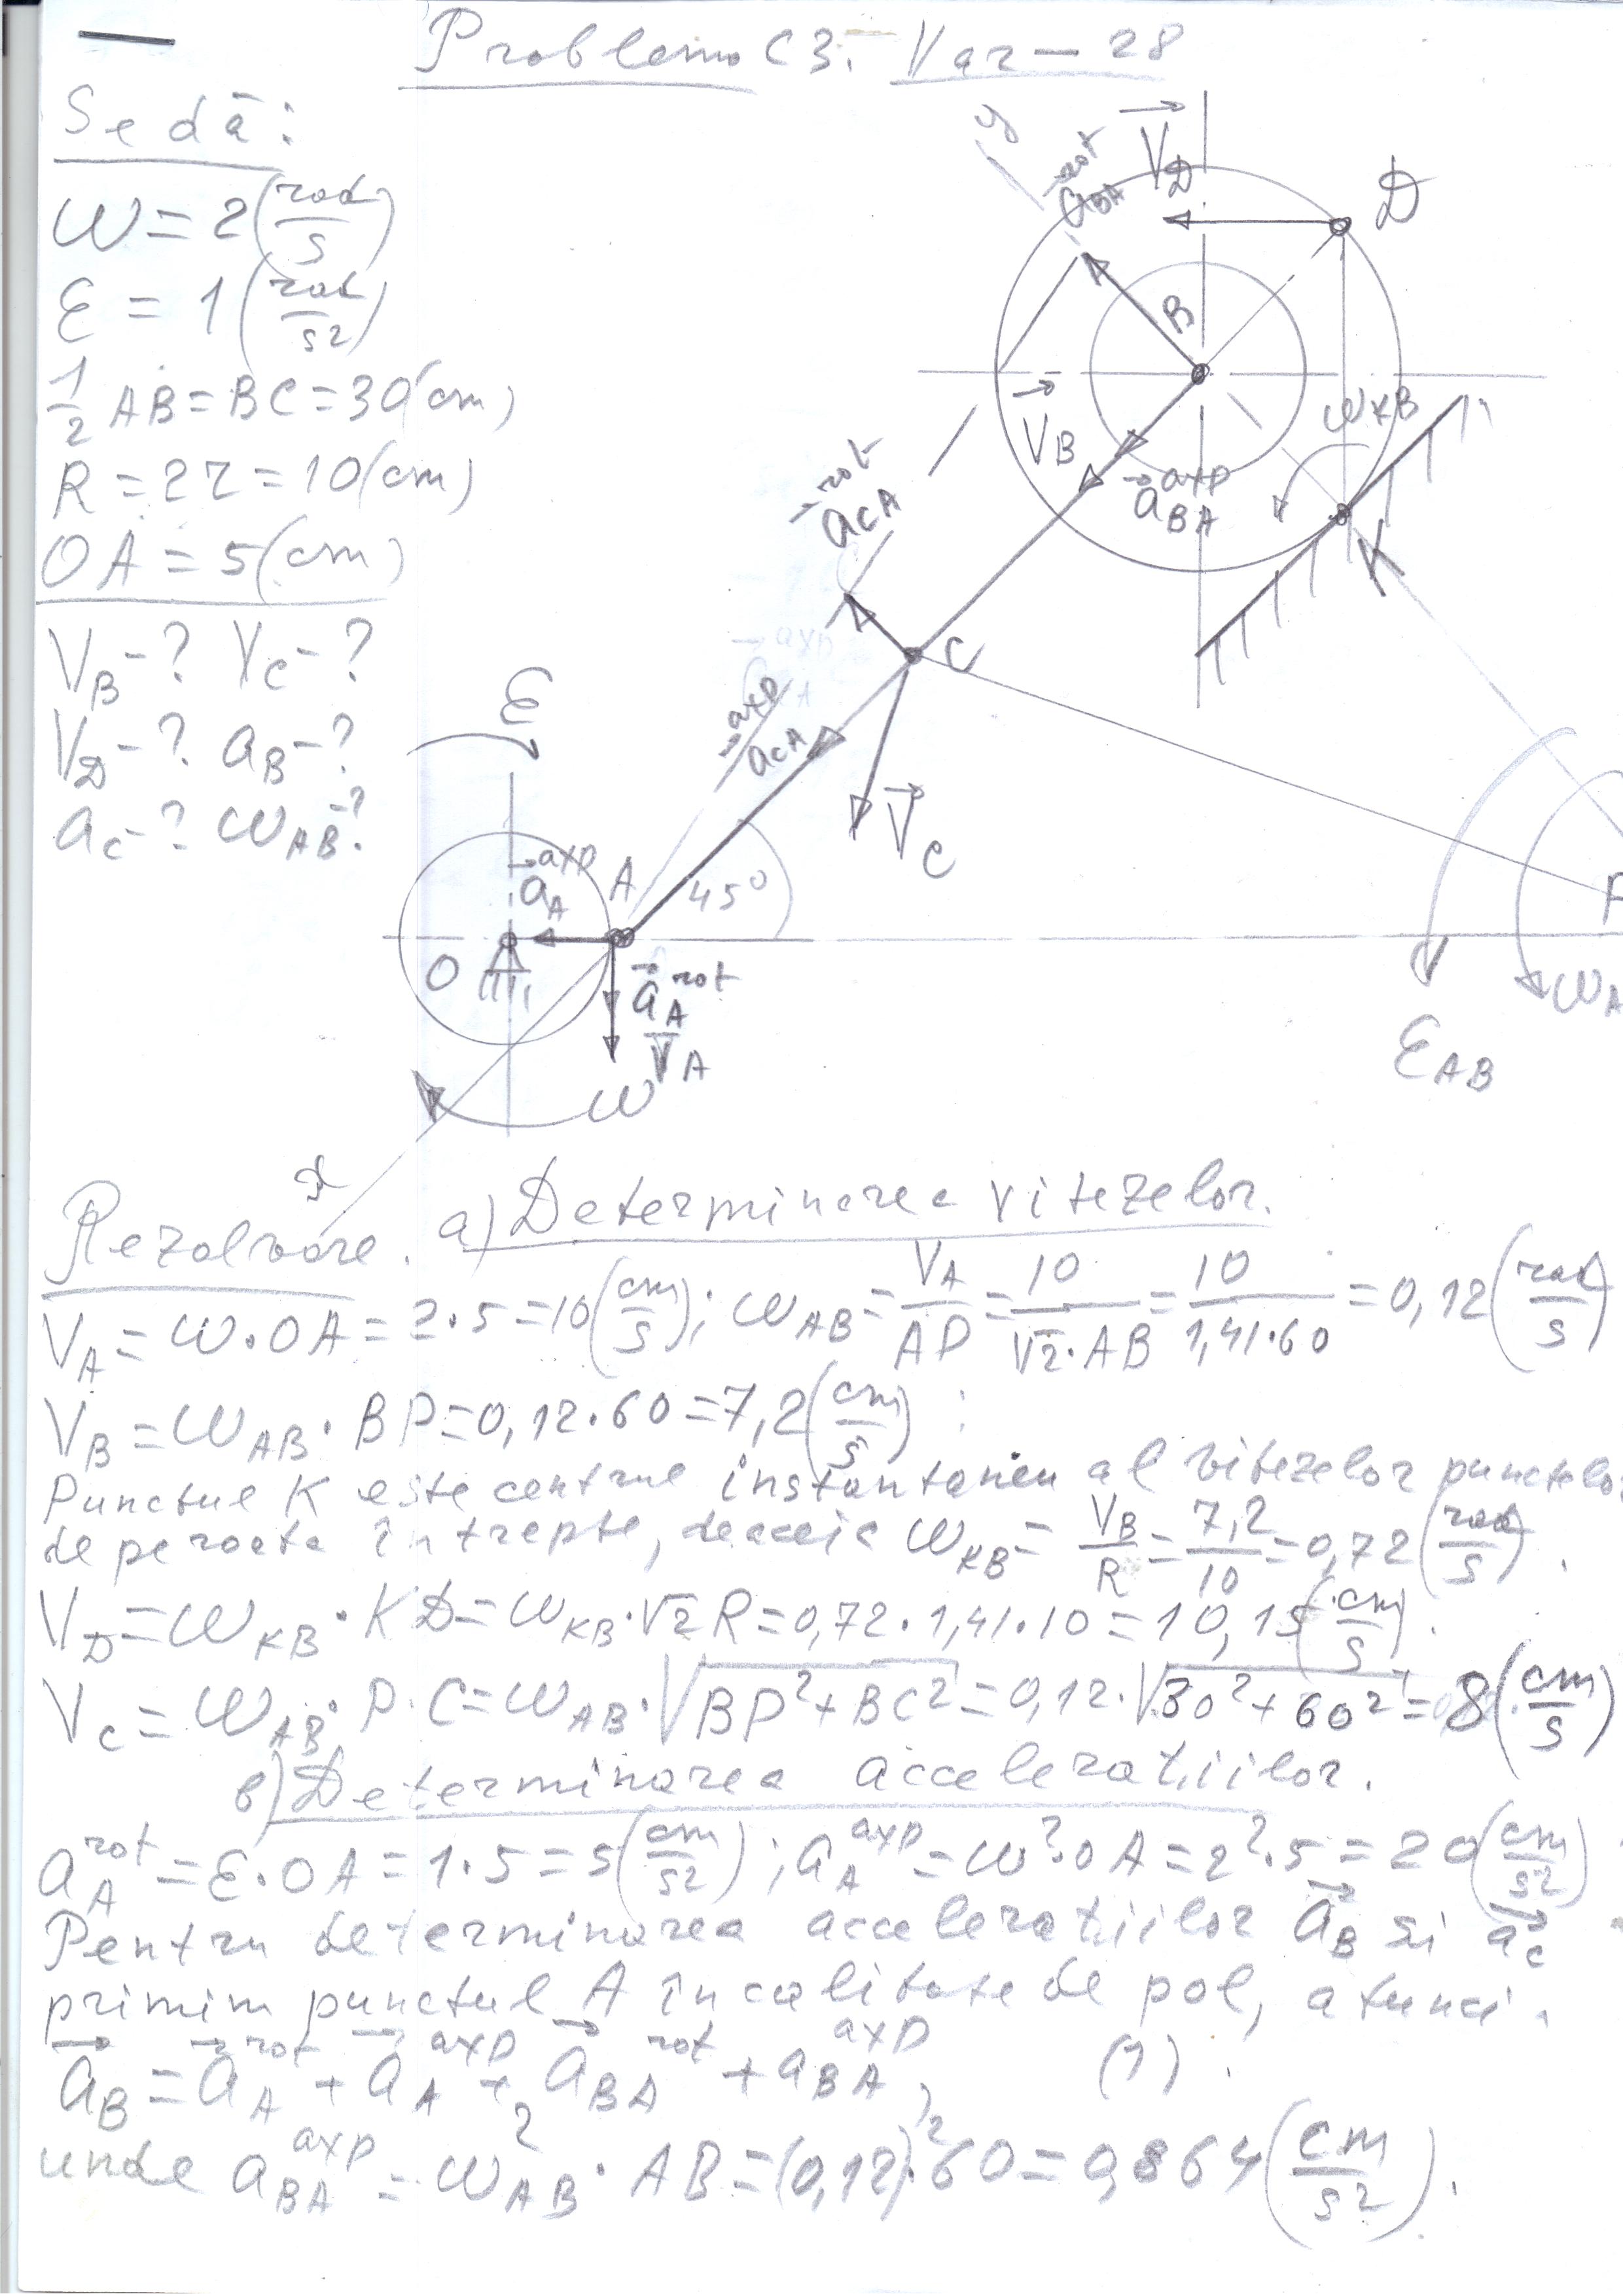 Problema C3. Var-28
Se dă:
ω = 2 (rad/s)
ε = 1 (rad/s²)
1/2 AB = BC = 30 (cm)
R = 2r = 10 (cm)
OA = 5 (cm)
V_B - ? V_C - ?
V_D - ? a_B - ?
a_C - ? ω_AB - ?
y
a_BA^rot
V_D
D
B
V_B
a_BA^axp
ω_KB
K
a_CA^rot
C
a_CA^axp
V_C
ε
a_A^axp
A
45°
O
a_A^rot
V_A
ω
P
ω_A
ε_AB
x
Rezolvare. a) Determinarea vitezelor.
V_A = ω·OA = 2·5 = 10 (cm/s); ω_AB = V_A/AP = 10/(√2·AB) = 10/(1,41·60) = 0,12 (rad/s)
V_B = ω_AB · BP = 0,12·60 = 7,2 (cm/s);
Punctul K este centrul instantaneu al vitezelor punctelo
de pe roata în trepte, deaceia ω_KB = V_B/R = 7,2/10 = 0,72 (rad/s).
V_D = ω_KB · KD = ω_KB · √2 R = 0,72·1,41·10 = 10,15 (cm/s).
V_C = ω_AB · P·C = ω_AB · √(BP² + BC²) = 0,12·√(30² + 60²) = 8 (cm/s)
b) Determinarea acceleratiilor.
a_A^rot = ε·OA = 1·5 = 5 (cm/s²); a_A^axp = ω²·OA = 2²·5 = 20 (cm/s²)
Pentru determinarea acceleratiilor a_B si a_C
primim punctul A in calitate de pol, atunci.
a_B = a_A^rot + a_A^axp + a_BA^rot + a_BA^axp, (1).
unde a_BA^axp = ω_AB² · AB = (0,12)²·60 = 0,864 (cm/s²).